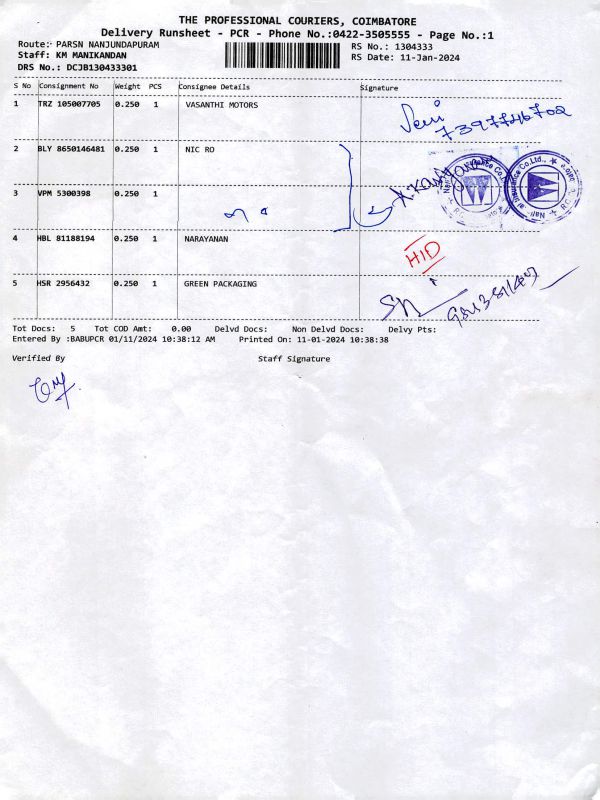 THE PROFESSIONAL COURIERS, COIMBATORE
Delivery Runsheet - PCR - Phone No.:0422-3505555 - Page No.:1
Route: PARSN NANJUNDAPURAM RS No.: 1304333
Staff: KM MANIKANDAN RS Date: 11-Jan-2024
DRS No.: DCJB130433301
S No Consignment No Weight PCS Consignee Details Signature
1 TRZ 105007705 0.250 1 VASANTHI MOTORS
7397746702
2 BLY 8650146481 0.250 1 NIC RO
3 VPM 5300398 0.250 1
4 HBL 81188194 0.250 1 NARAYANAN
HID
5 HSR 2956432 0.250 1 GREEN PACKAGING
Tot Docs: 5 Tot COD Amt: 0.00 Delvd Docs: Non Delvd Docs: Delvy Pts:
Entered By :BABUPCR 01/11/2024 10:38:12 AM Printed On: 11-01-2024 10:38:38
Verified By Staff Signature